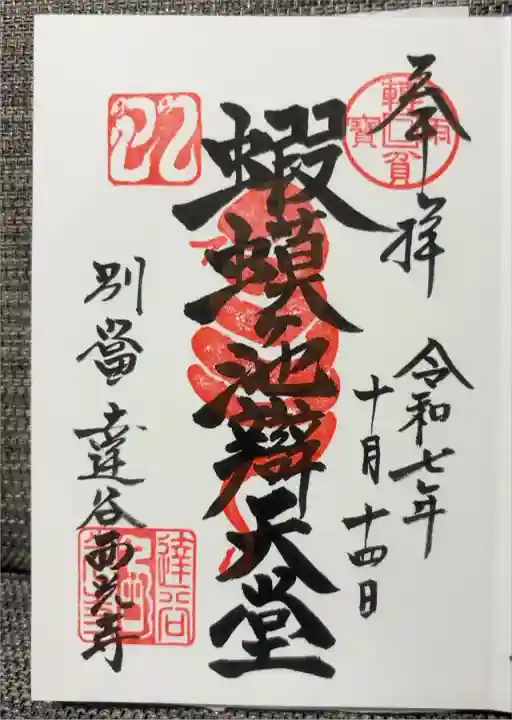 奉拝
令和七年
十月十四日
蝦蟆ヶ池辯天堂
別當 達谷西光寺
達谷